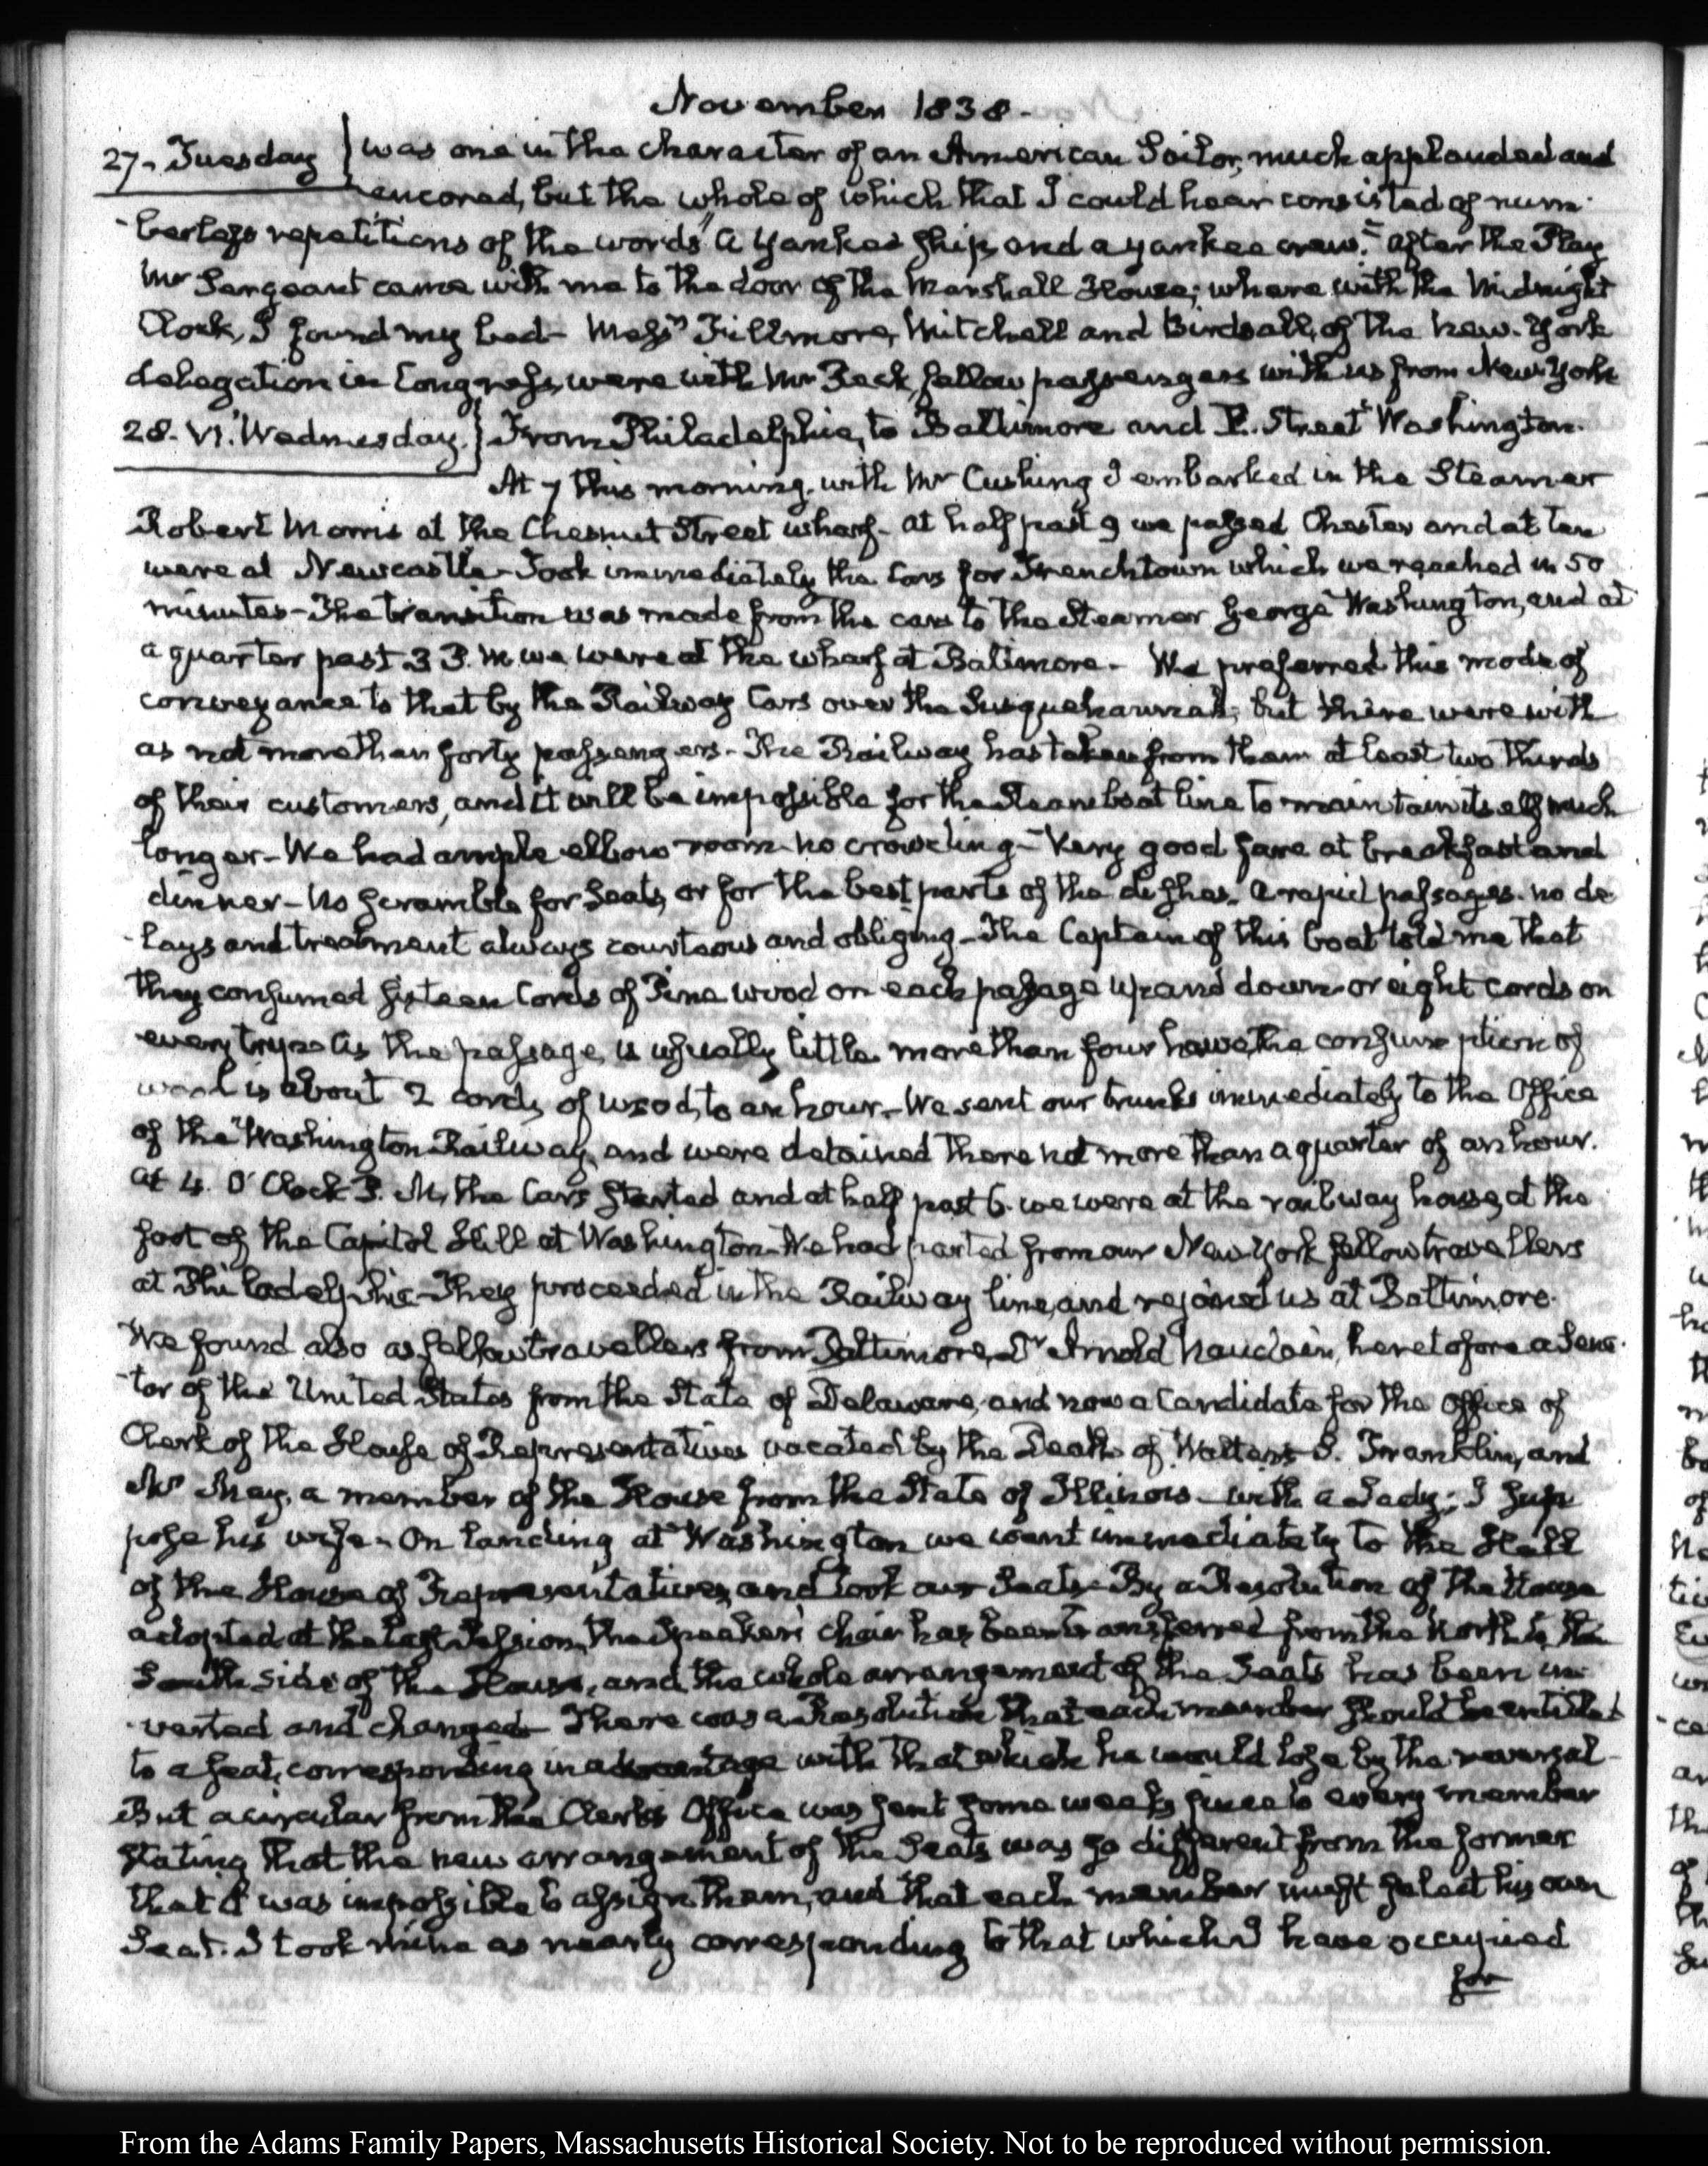 November 1838.
27. Tuesday } was one in the character of an American Sailor, much applauded and
encored, but the whole of which that I could hear consisted of num-
-berless repetitions of the words "a Yankee Ship, and a Yankee crew." After the Play
Mr Sergeant came with me to the door of the Marshall House; where with the Midnight
Clock, I found my bed— Messrs Fillmore, Mitchell and Birdsall, of the New-York
delegation in Congress, were with Mr Peck, fellow passengers with us from New York
28. VI. Wednesday. } From Philadelphia, to Baltimore and F. Street Washington.
At 7 this morning, with Mr Cushing I embarked in the Steamer
Robert Morris at the Chesnut Street wharf— at half past 9 we passed Chester and at ten
were at Newcastle— Took immediately the Cars for Frenchtown which we reached in 50
minutes— The transition was made from the cars to the Steamer George Washington, and at
a quarter past 3 P.M. we were at the wharf at Baltimore— We preferred this mode of
conveyance to that by the Railway Cars over the Susquehannah; but there were with
us not more than forty passengers— The Railway has taken from them at least two thirds
of their customers, and it will be impossible for the Steamboat line to maintain itself much
longer— We had ample elbow room no crowding— Very good fare at breakfast and
dinner— No scramble for Seats, or for the best parts of the dishes— a rapid passage— no de-
-lays and treatment always courteous and obliging— The Captain of this boat told me that
they consumed sixteen Cords of Pine wood on each passage up and down or eight cords on
every trip— As the passage, is usually little more than four hours, the consumption of
wood is about 2 cords, of wood, to an hour— We sent our trunks immediately to the Office
of the Washington Railway, and were detained there not more than a quarter of an hour.
At 4. O'Clock P.M. the Cars started and at half past 6. we were at the railway house, at the
foot of the Capitol Hill at Washington— We had parted from our New York fellow travellers
at Philadelphia— They proceeded in the Railway line, and rejoined us at Baltimore.
We found also as fellow travellers from Baltimore, Dr Arnold Naudain, heretofore a Sena-
-tor of the United States from the State of Delaware, and now a Candidate for the office of
Clerk of the House of Representatives vacated by the Death of Walter S. Franklin, and
Mr May, a member of the House from the State of Illinois— with a Lady; I sup-
pose his wife— On landing at Washington we went immediately to the Hall
of the House of Representatives, and took our Seats— By a Resolution of the House
adopted at the last Session, the Speaker's chair has been transferred from the North to the
South side of the House, and the whole arrangement of the Seats has been in-
-verted and changed— There was a Resolution that each member should be entitled
to a seat, corresponding in advantage with that which he would lose by the reversal—
But a circular from the Clerk's Office was sent some weeks since to every member
stating that the new arrangement of the Seats was so different from the former
that it was impossible to assign them, and that each member must select his own
Seat. I took mine as nearly corresponding to that which I have occupied
for
From the Adams Family Papers, Massachusetts Historical Society. Not to be reproduced without permission.